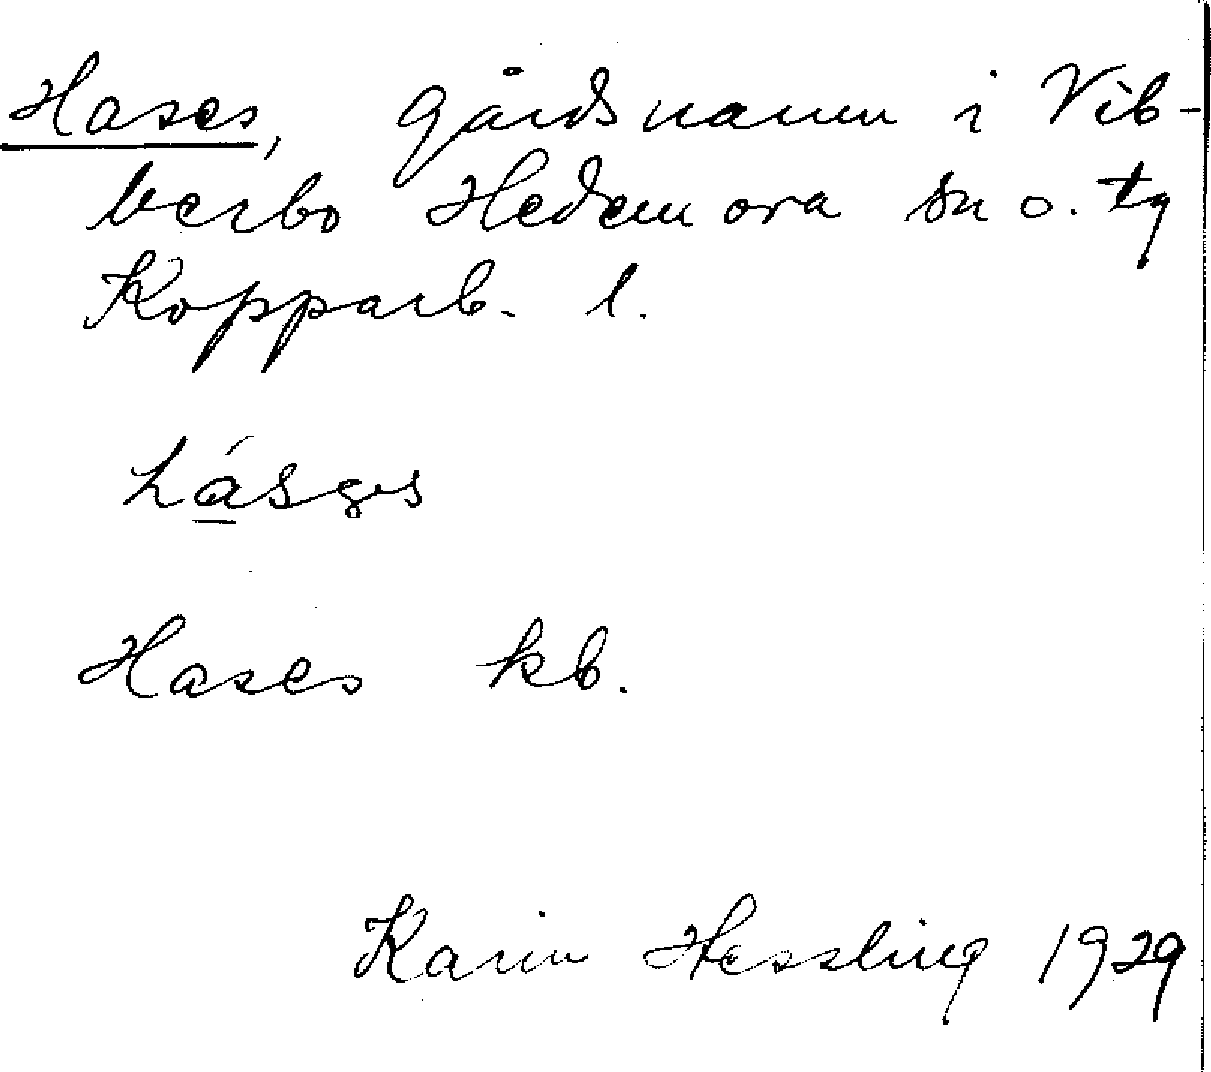 Hases, gårdsnamn i Vib-
berbo Hedemora sn o. tg
Kopparb. l.
Hases kb.
Karin Hessling 1929